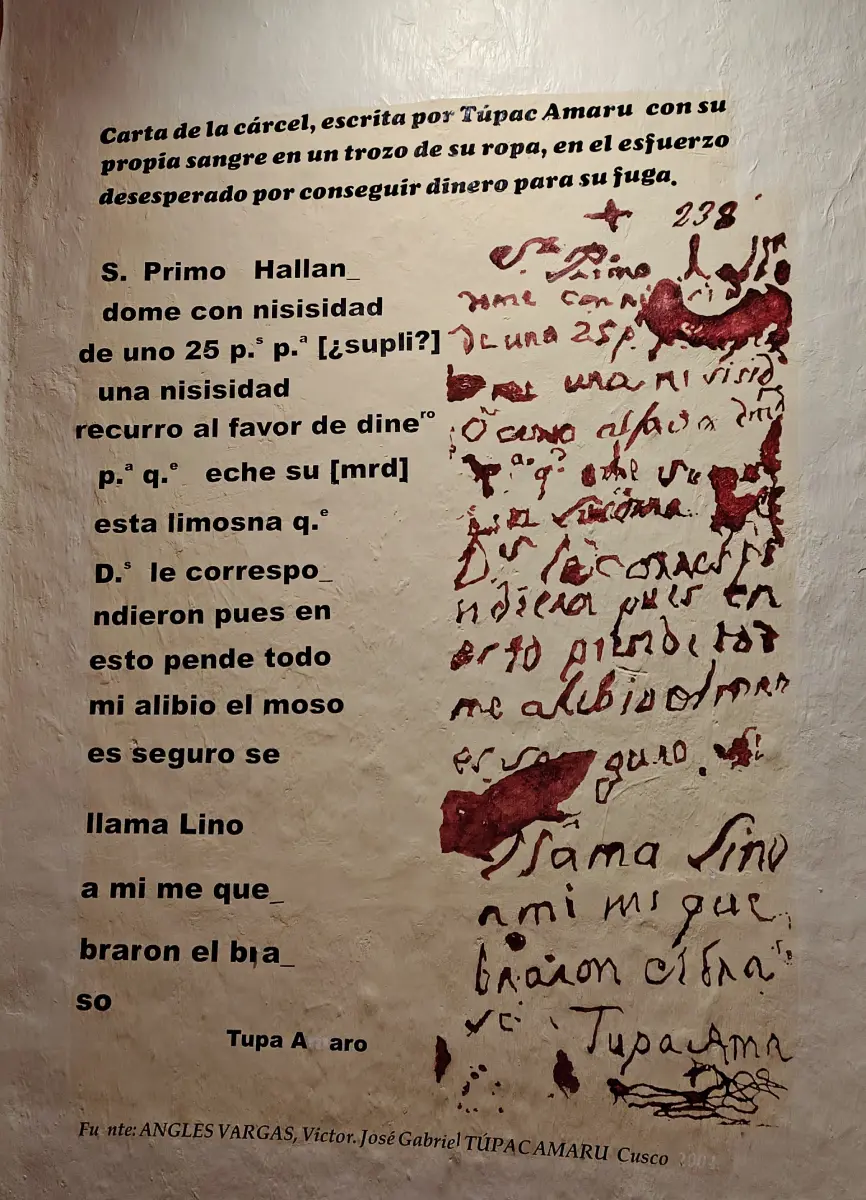 Carta de la cárcel, escrita por Túpac Amaru con su
propia sangre en un trozo de su ropa, en el esfuerzo
desesperado por conseguir dinero para su fuga.
S. Primo Hallan_
dome con nisisidad
de uno 25 p.ˢ p.ª [¿supli?]
una nisisidad
recurro al favor de dineʳᵒ
p.ª q.ᵉ eche su [mrd]
esta limosna q.ᵉ
D.ˢ le correspo_
ndieron pues en
esto pende todo
mi alibio el moso
es seguro se
llama Lino
a mi me que_
braron el bra_
so
Tupa A aro
+ 238
Primo
dome con
de una 25 p
una nisisid
alfavor
p.ª q.ᵉ eche su
D.ˢ le corresp
ndiera pues en
esto pende tod
me alibio el mos
es se guro. se
llama Lino
a mi me que
braron el bra
so Tupa Ama
Fu nte: ANGLES VARGAS, Víctor. José Gabriel TÚPAC AMARU Cusco